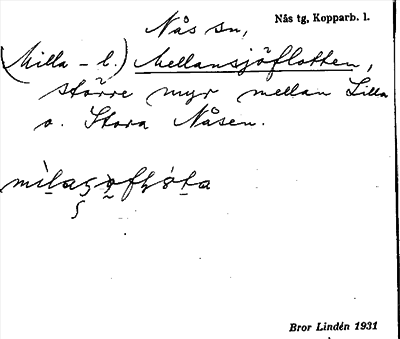 Nås sn,
Nås tg, Kopparb. l.
(Milla - l.) Mellansjöflotten,
större myr mellan Lilla
o. Stora Nåsen.
Bror Lindén 1931